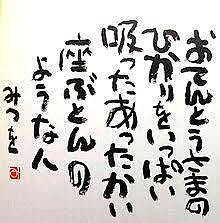 おてんとうさまの
ひかりをいっぱい
吸ったあったかい
座ぶとんの
ような人
みつを